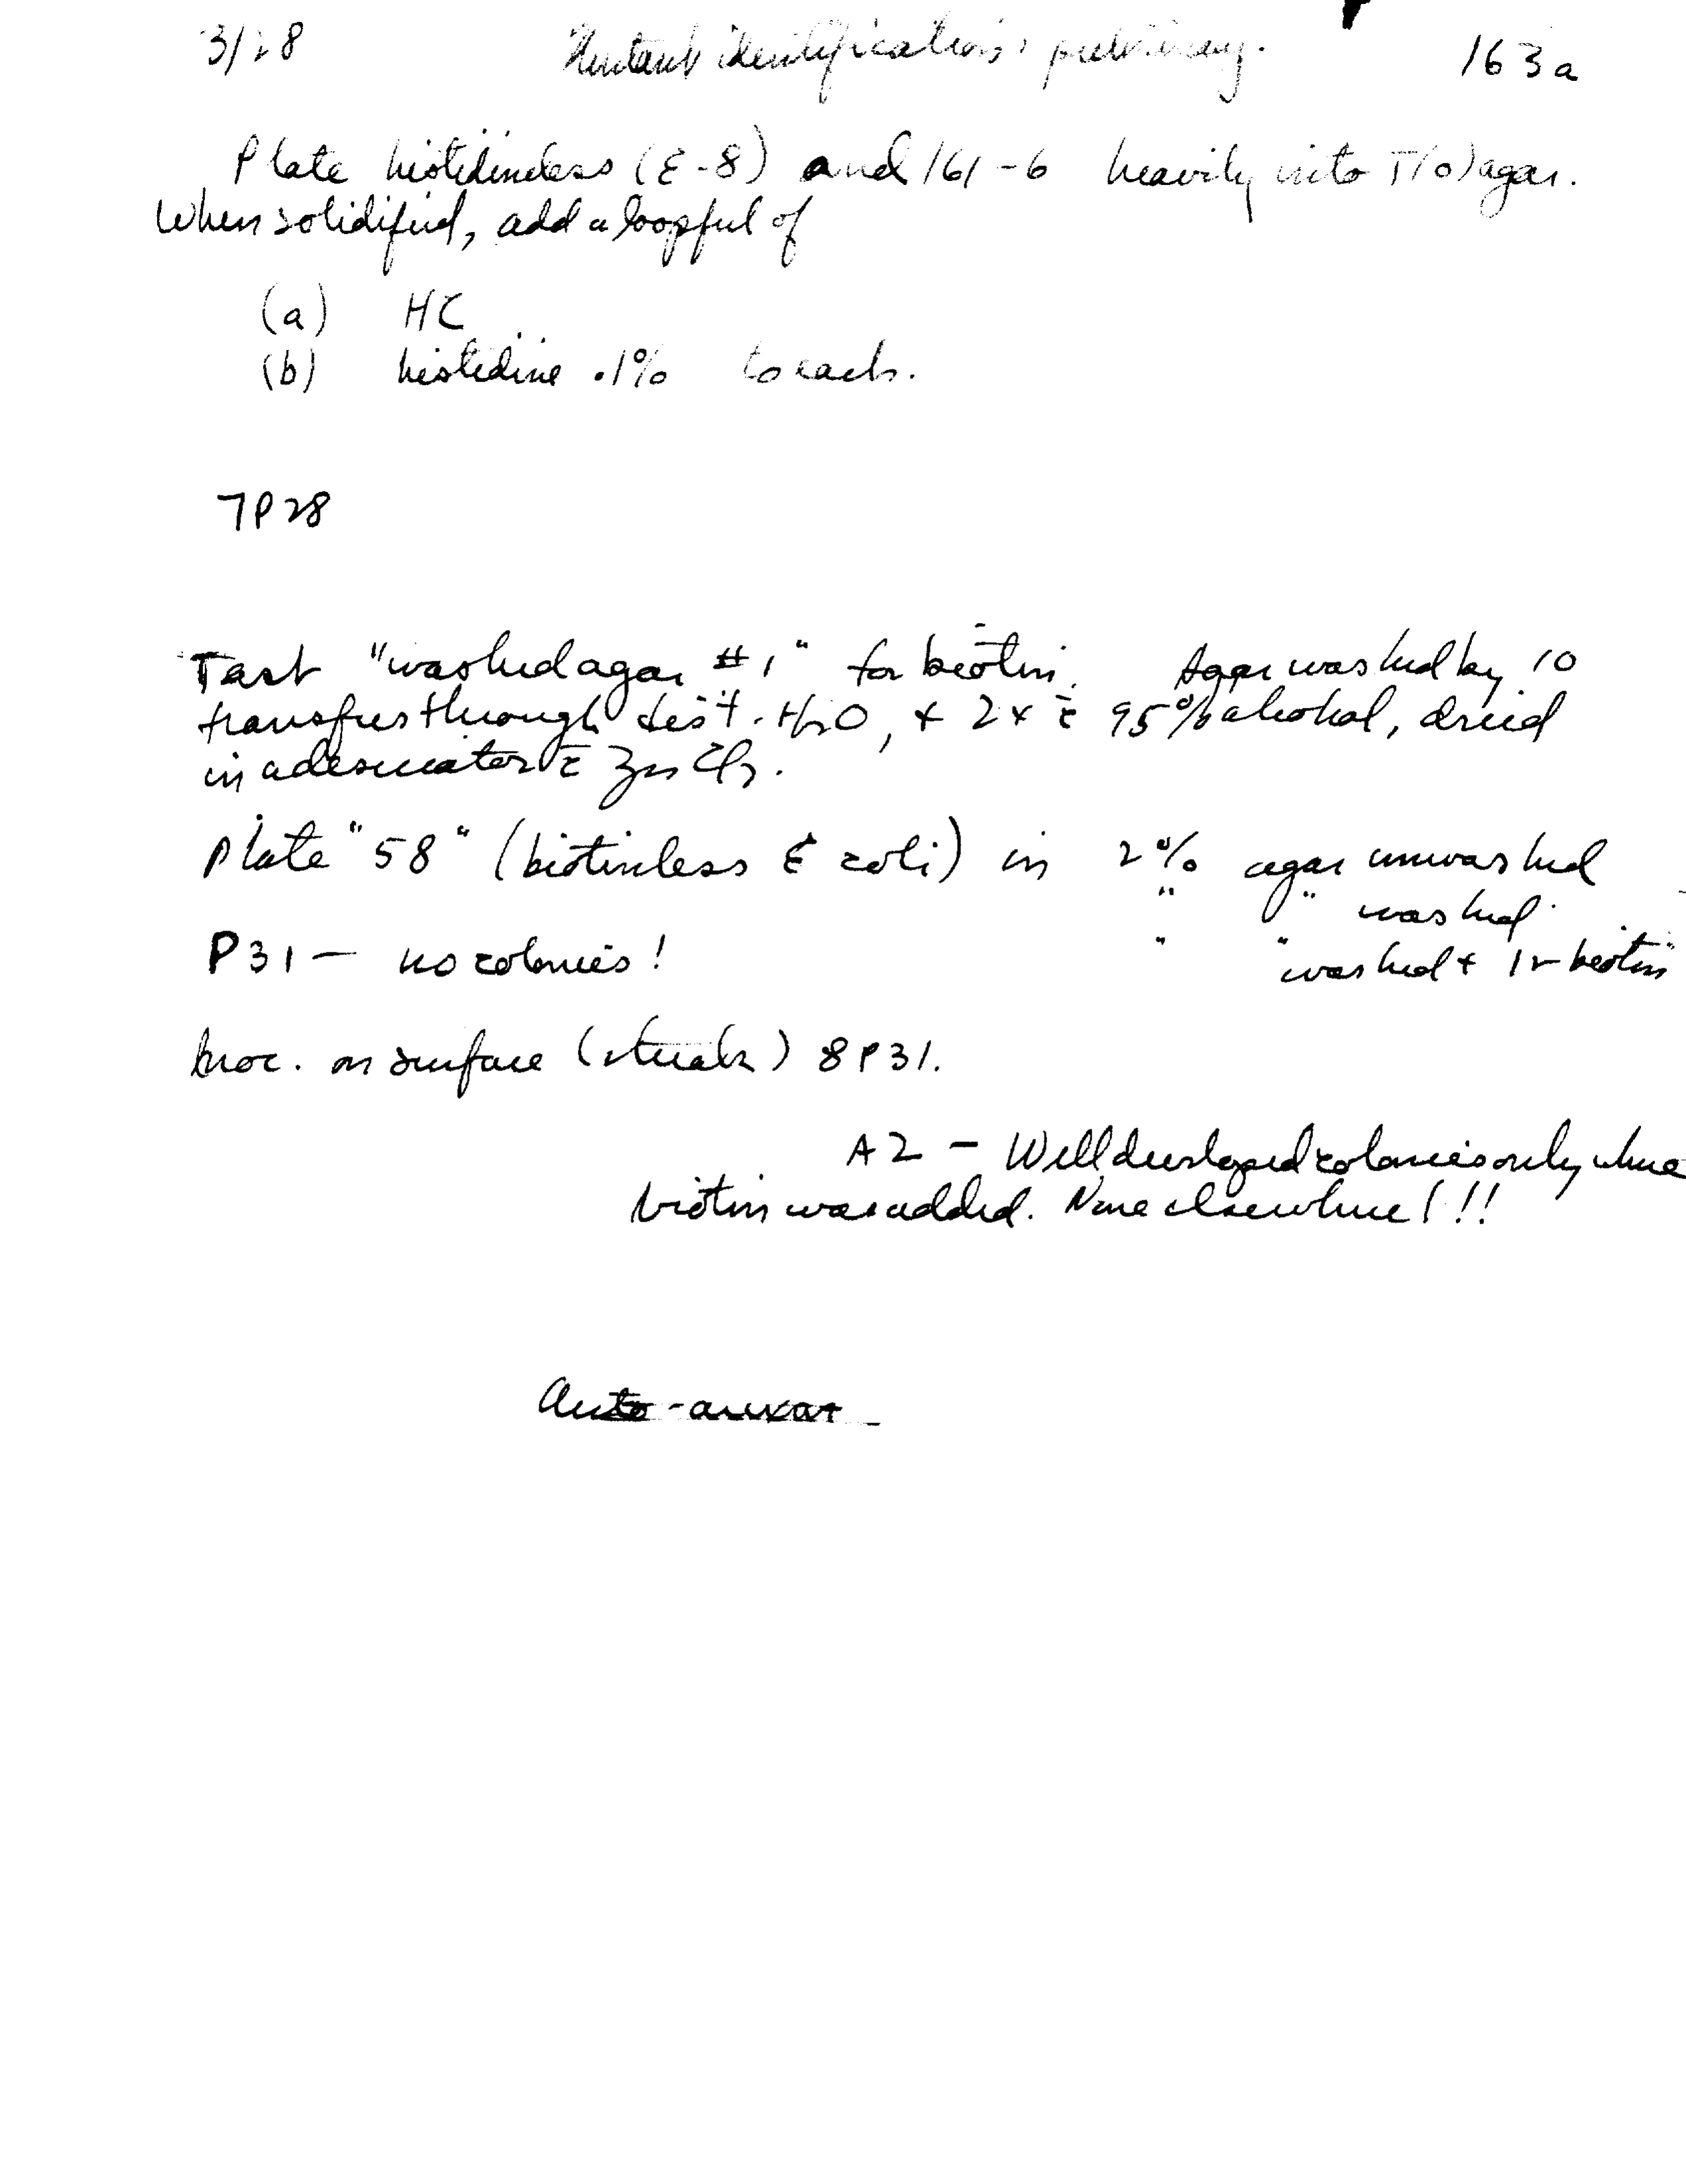 3/28 Mutant identification: preliminary. 163a
Plate histidineless (E-8) and 161-6 heavily into T(0) agar.
When solidified, add a loopful of
(a) HC
(b) histidine .1% to each.
7P28
Test "washed agar #1" for biotin. Agar washed by 10
transfers through dist. H2O, + 2x c̄ 95% alcohol, dried
in a desiccator c̄ ZnCl2.
Plate "58" (biotinless E coli) in 2% agar unwashed
" " washed
P31 — no colonies! " " washed + 1γ biotin
Inoc. on surface (streak) 8P31.
A2 — Well developed colonies only where
biotin was added. None elsewhere!!!
Auto-auxot